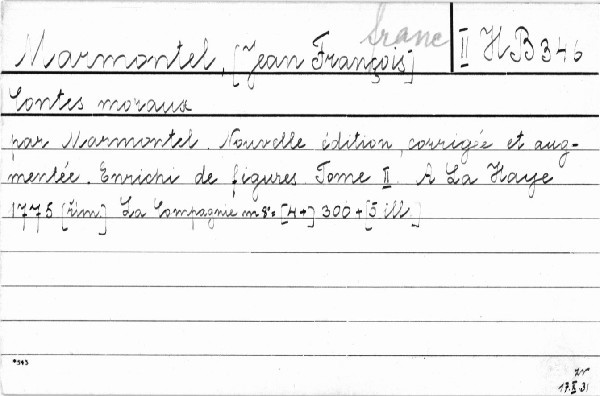 franc
Marmontel, [Jean François] II HB 346
Contes moraux
par Marmontel. Nouvelle édition, corrigée et aug-
mentée. Enrichi de figures. Tome II. A La Haye
1775 [řím.] La Compagnie m 8° [4+] 300 + [5 ill.]
*545
17.II.31